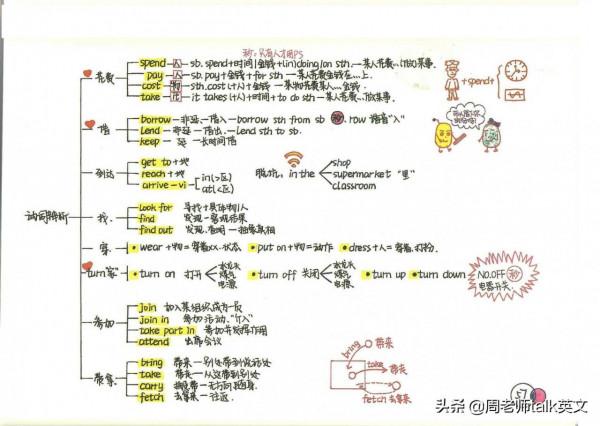 秒: 只有人才用PS
花费
spend 人 sb. spend+时间|金钱+(in)doing|on sth. 某人花费..(做)某事.
pay 人 sb. pay+金钱+for sth 某人花费金钱在...上.
cost 物 sth. cost(+人)+金钱 某物花费某人...金钱.
take it it takes(+人)+时间+to do sth 某人花费...做某事.
+spend+
借
borrow 非延 借入 borrow sth from sb 秒. row 谐音"入"
lend 非延 借出. lend sth to sb.
keep 延 长时间借
到达
get to +地
reach +地
arrive-vi in(>区)
at(<区)
in the
shop
supermarket "里"
classroom
动词辨析
找
look for 寻找+具体物|人
find 发现 客观结果
find out 发现,查明 抽象真相
穿
wear+物=穿着xx.状态 put on+物=动作 dress+人=穿着.打扮.
turn家
turn on 打开 水龙头 煤气 电源
turn off 关闭 水龙头 煤气 电源
turn up turn down
NO.OFF 秒
电器开关.
参加
join 加入某组织成为一员
join in 参加活动.
take part in 参加并发挥作用
attend 出席会议
带拿
bring 带来 别处带到说话处
take 带走 从这带到别处
carry 无方向
fetch 去拿来 往返.
bring 带来
take 带走
fetch 去拿来
57
头条 @周老师talk英文